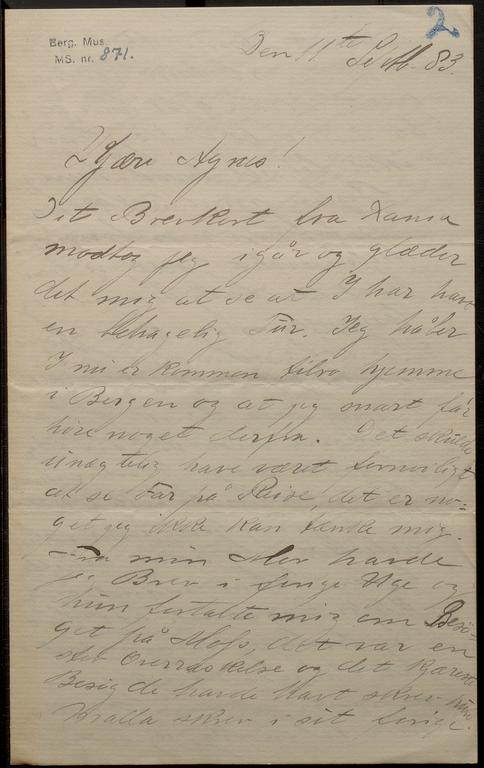 2
Berg. Mus.
MS. nr. 871.
Den 11te Septb. 83.
Kjære Agnes!
Dit Brevkort fra Xania
modtog jeg igår og glæder
det mig at se at I har havt
en behagelig Tur. Jeg håber
I nu er kommen hjemme
i Bergen og at jeg snart får
høre noget derfra. Det skulde
unægtelig have været fornøieligt
at se Far på Reise, det er no=
get jeg ikke kan tænke mig.
Fra min Mor havde
jeg Brev i forige Uge og
hun fortalte mig om Besø-
get på Mofs, det var en
stor Overraskelse og det kjæreste
Besøg de havde havt skrev hun
skrev i sit forige